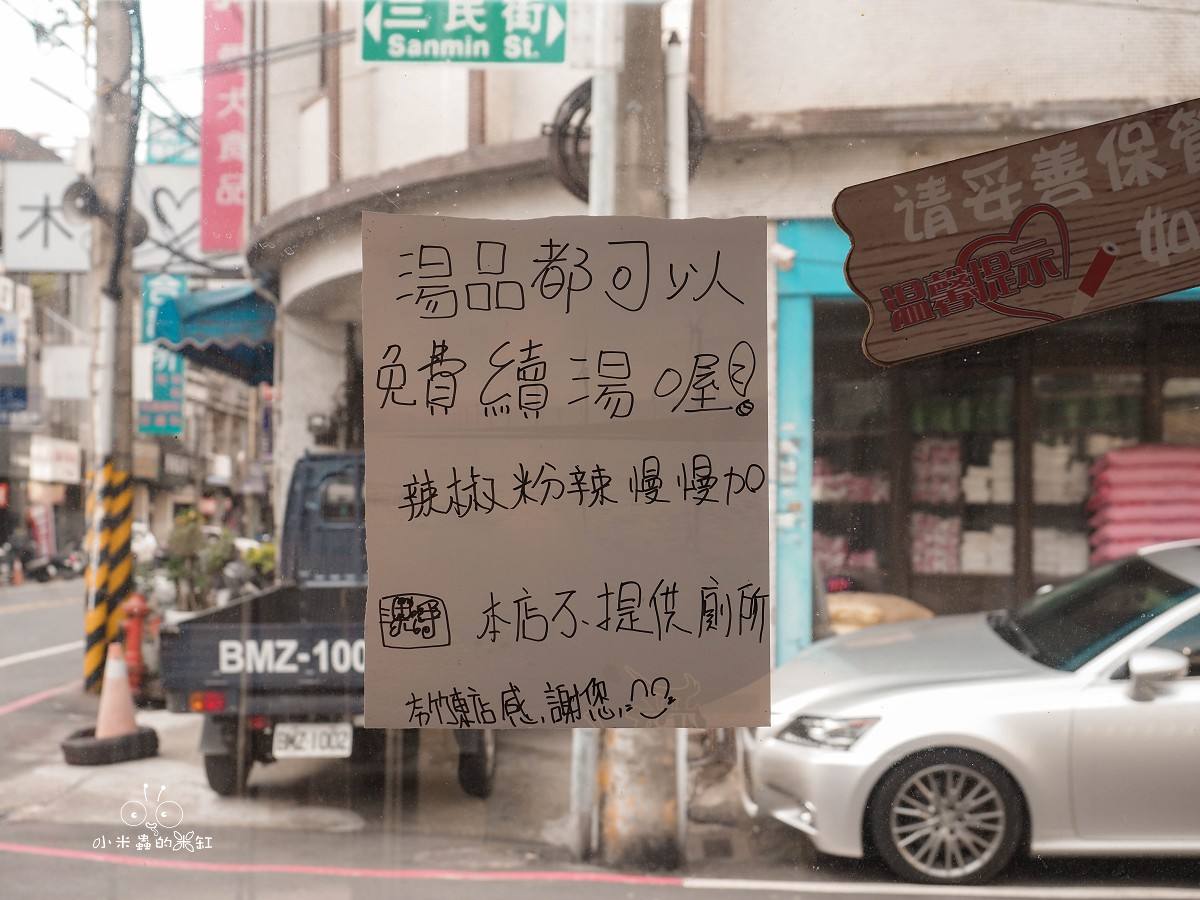 三民街
Sanmin St.
大食品
木
请妥善保管
如
温馨提示
湯品都可以
免費續湯喔!
辣椒粉辣慢慢加
本店不提供廁所
竹東店感謝您
BMZ-100
BMZ-1002
小米蟲的米缸